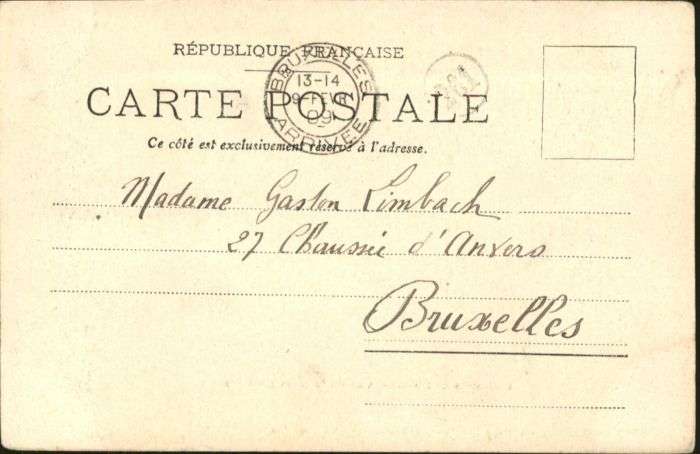 RÉPUBLIQUE FRANÇAISE
CARTE POSTALE
Ce côté est exclusivement réservé à l'adresse.
BRUXELLES
13-14
9 FEVR
09
ARRIVÉE
Madame Gaston Limbach
27 Chaussée d'Anvers
Bruxelles